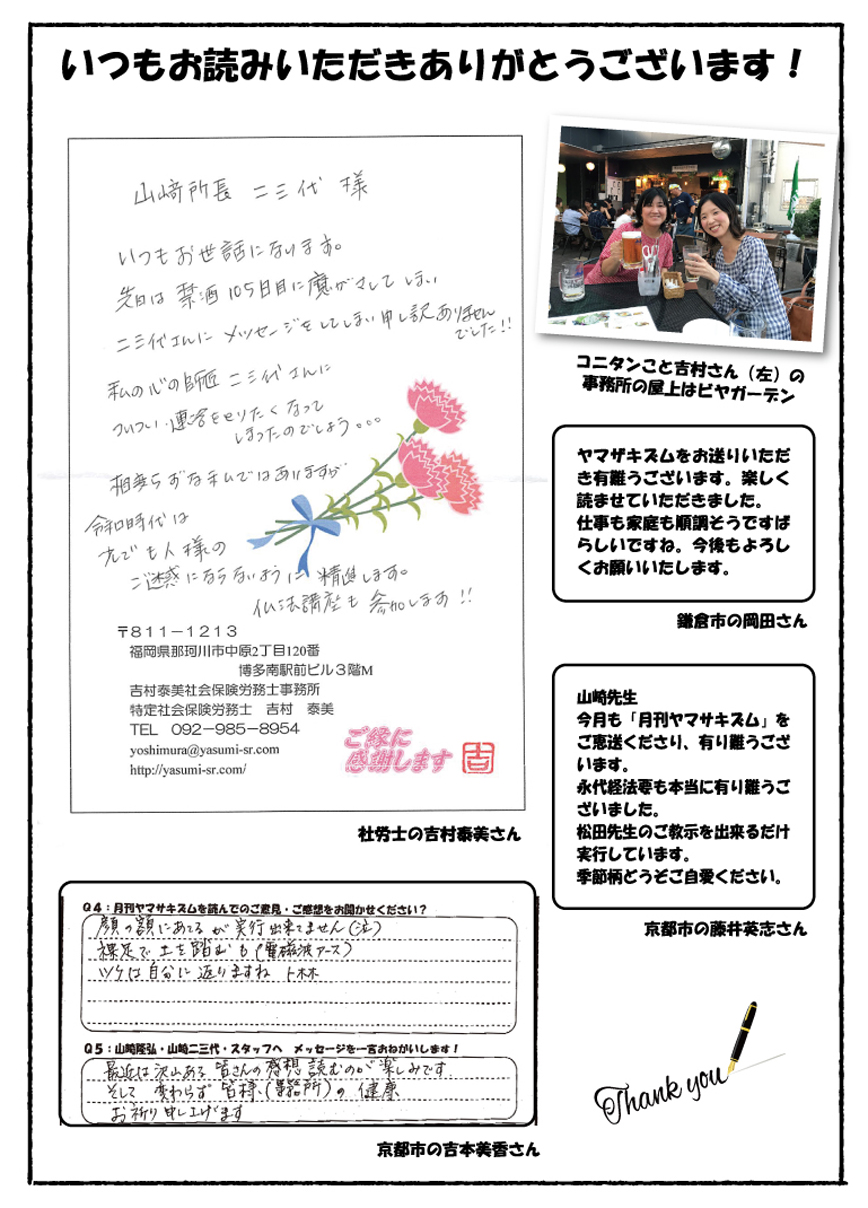 いつもお読みいただきありがとうございます！
山﨑所長 二三代 様
いつもお世話になります。
先日は 禁酒105日目に魔がさしてしまい
二三代さんに メッセージをしてしまい申し訳ありません
でした!!
私の心の師匠 二三代さんに
ついつい連絡をとりたくなって
しまったのでしょう。。。
相変らずな私ではありますが
令和時代は
九でも人様の
ご迷惑にならないように 精進します。
仏法講座も 参加します!!
〒811－1213
福岡県那珂川市中原2丁目120番
博多南駅前ビル３階M
吉村泰美社会保険労務士事務所
特定社会保険労務士 吉村 泰美
TEL 092－985－8954
yoshimura@yasumi-sr.com
http://yasumi-sr.com/
ご縁に
感謝します
吉
社労士の吉村泰美さん
コニタンこと吉村さん（左）の
事務所の屋上はビヤガーデン
ヤマザキズムをお送りいただ
き有難うございます。楽しく
読ませていただきました。
仕事も家庭も順調そうですば
らしいですね。今後もよろし
くお願いいたします。
鎌倉市の岡田さん
山崎先生
今月も「月刊ヤマサキズム」を
ご恵送くださり、有り難うござ
います。
永代経法要も本当に有り難うご
ざいました。
松田先生のご教示を出来るだけ
実行しています。
季節柄どうぞご自愛ください。
京都市の藤井英志さん
Q4：月刊ヤマサキズムを読んでのご意見・ご感想をお聞かせください？
顔の額にあてるが 実行出来てません(泣)
裸足で土を踏むも(電磁波アース)
ツケは自分に返りますね トホホ
Q5：山﨑隆弘・山﨑二三代・スタッフへ メッセージを一言おねがいします！
最近は沢山ある皆さんの感想読むのが楽しみです
そして 変わらず皆様(事務所)の健康
お祈り申し上げます
京都市の吉本美香さん
Thank you